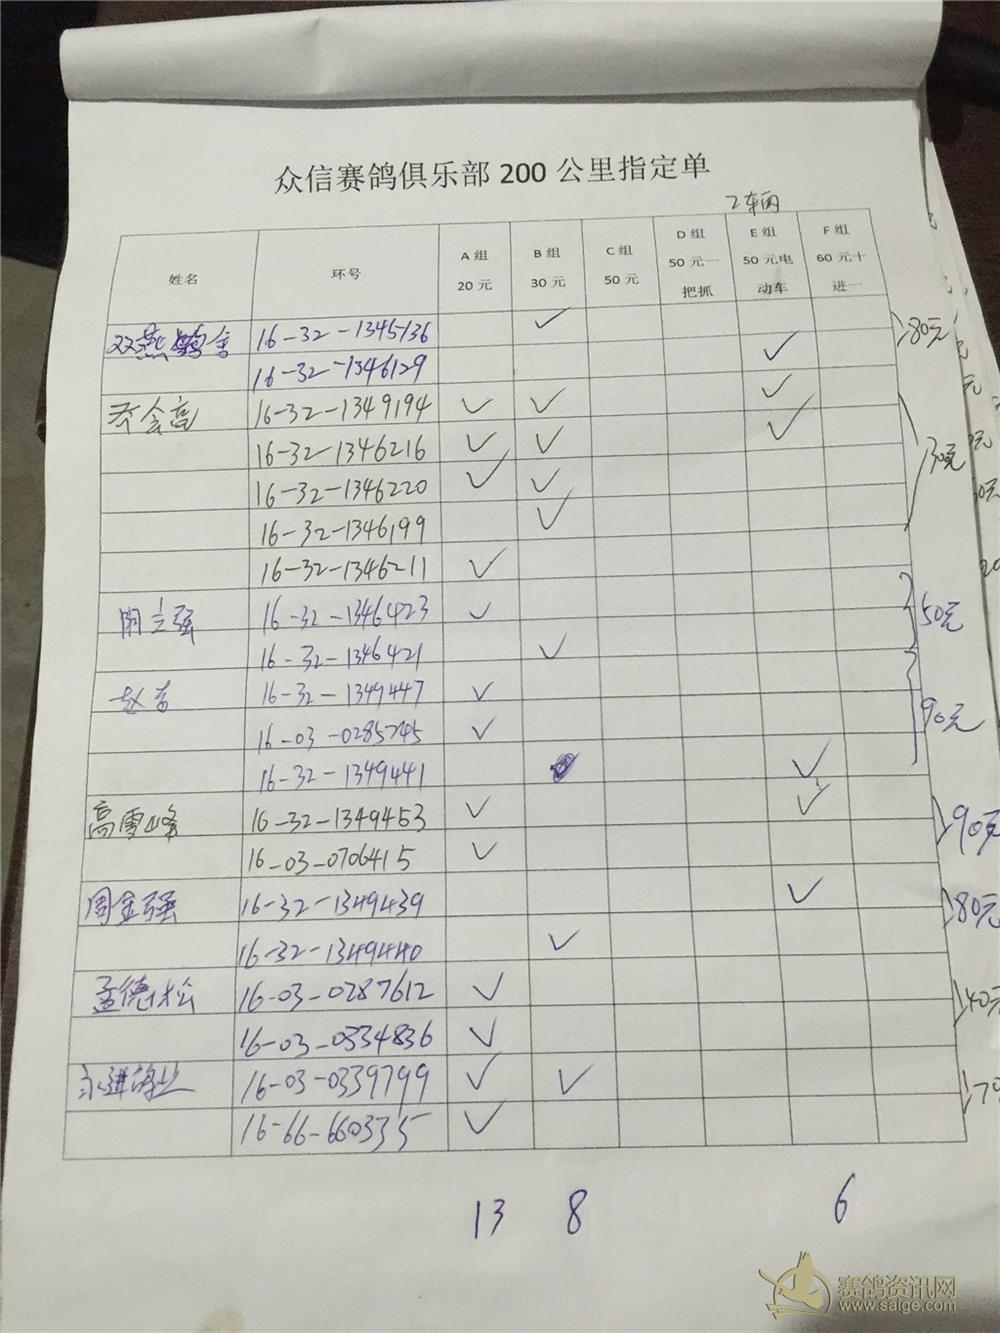 众信赛鸽俱乐部 200 公里指定单
2辆
姓名 环号 A 组 20 元 B 组 30 元 C 组 50 元 D 组 50 元一把抓 E 组 50 元电动车 F 组 60 元十进一
双燕鸽舍 16-32-1345136 ✓ 80元
16-32-1346129 ✓
16-32-1349194 ✓ ✓ ✓
16-32-1346216 ✓ ✓ ✓
16-32-1346220 ✓ ✓
16-32-1346199 ✓
16-32-1346211 ✓
闫立强 16-32-1346423 ✓ 50元
16-32-1346421 ✓
16-32-1349447 ✓ 90元
16-03-0285745 ✓
16-32-1349441 ✓
高雪峰 16-32-1349453 ✓ ✓ 90元
16-03-0706415 ✓
周金强 16-32-1349439 ✓ 80元
16-32-1349440 ✓
孟德松 16-03-0287612 ✓ 40元
16-03-0334836 ✓
永进鸽业 16-03-0339799 ✓ ✓
16-66-660335 ✓
13 8 6
赛鸽资讯网
www.saige.com